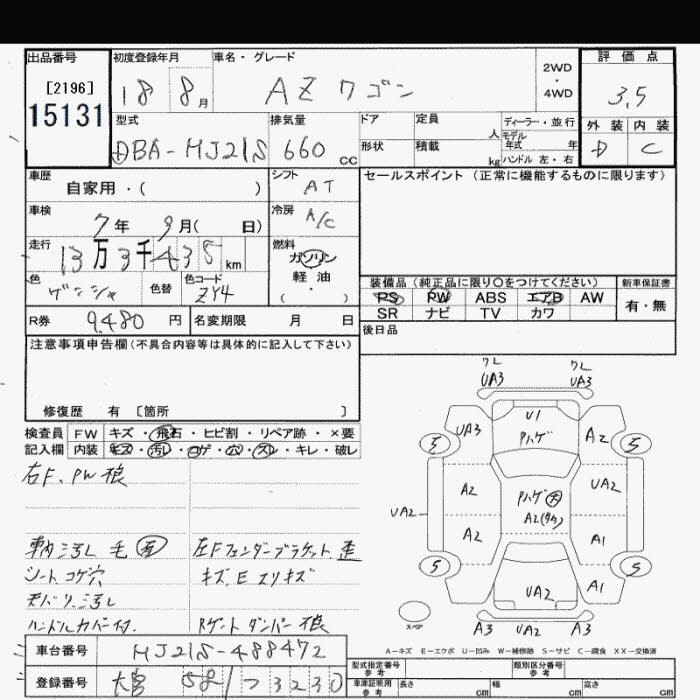 出品番号
[2196]
15131
初度登録年月
18 8 月
車名・グレード
AZ ワゴン
2WD
・
4WD
評価点
3.5
外装 内装
D C
型式
DBA-MJ21S
排気量
660 cc
ドア
定員
人
形状
積載
kg
ディーラー・並行
モデル年式 年
ハンドル 左・右
車歴
自家用・( )
シフト
AT
セールスポイント (正常に機能するものに限ります)
車検
7年 9月( 日)
冷房
A/C
走行
13万3千435 km
燃料
ガソリン
軽・油
( ・ )
色
ゲンジャ
色替
色コード
ZY4
装備品 (純正品に限り〇をつけてください)
PS PW ABS エアB AW
SR ナビ TV カワ
新車保証書
有・無
R券 9,480 円
名変期限 月 日
後日品
注意事項申告欄(不具合内容等は具体的に記入して下さい)
修復歴 有 [箇所 ]
検査員 FW キズ・飛石・ヒビ割・リペア跡・×要
記入欄 内装 キズ・汚レ・コゲ・穴・スレ・キレ・破レ
右F、PW 狼
車内汚レ 毛 有
シートコゲ穴
天バリ汚レ
ハンドルカバー付.
左Fフェンダーブラケット歪
キズ、E スリキズ
Rゲート ダンパー 狼
ワレ ワレ
UA3 UA3
U1
UA3 Pハゲ A2
5 5
A2 Pハゲ 大 UA2
UA2 A2(多数)
A2 A1
5 5
UA2 A1
スペア
A3 UA2 A3
A-キズ E-エクボ U-凹み W-補修跡 S-サビ C-腐食 XX-交換済
車台番号 MJ21S-488472
登録番号 大宮 581 / つ 3230
型式指定番号
参考
類別区分番号
参考
車庫証明用
参考
長さ cm 幅 cm 高さ cm